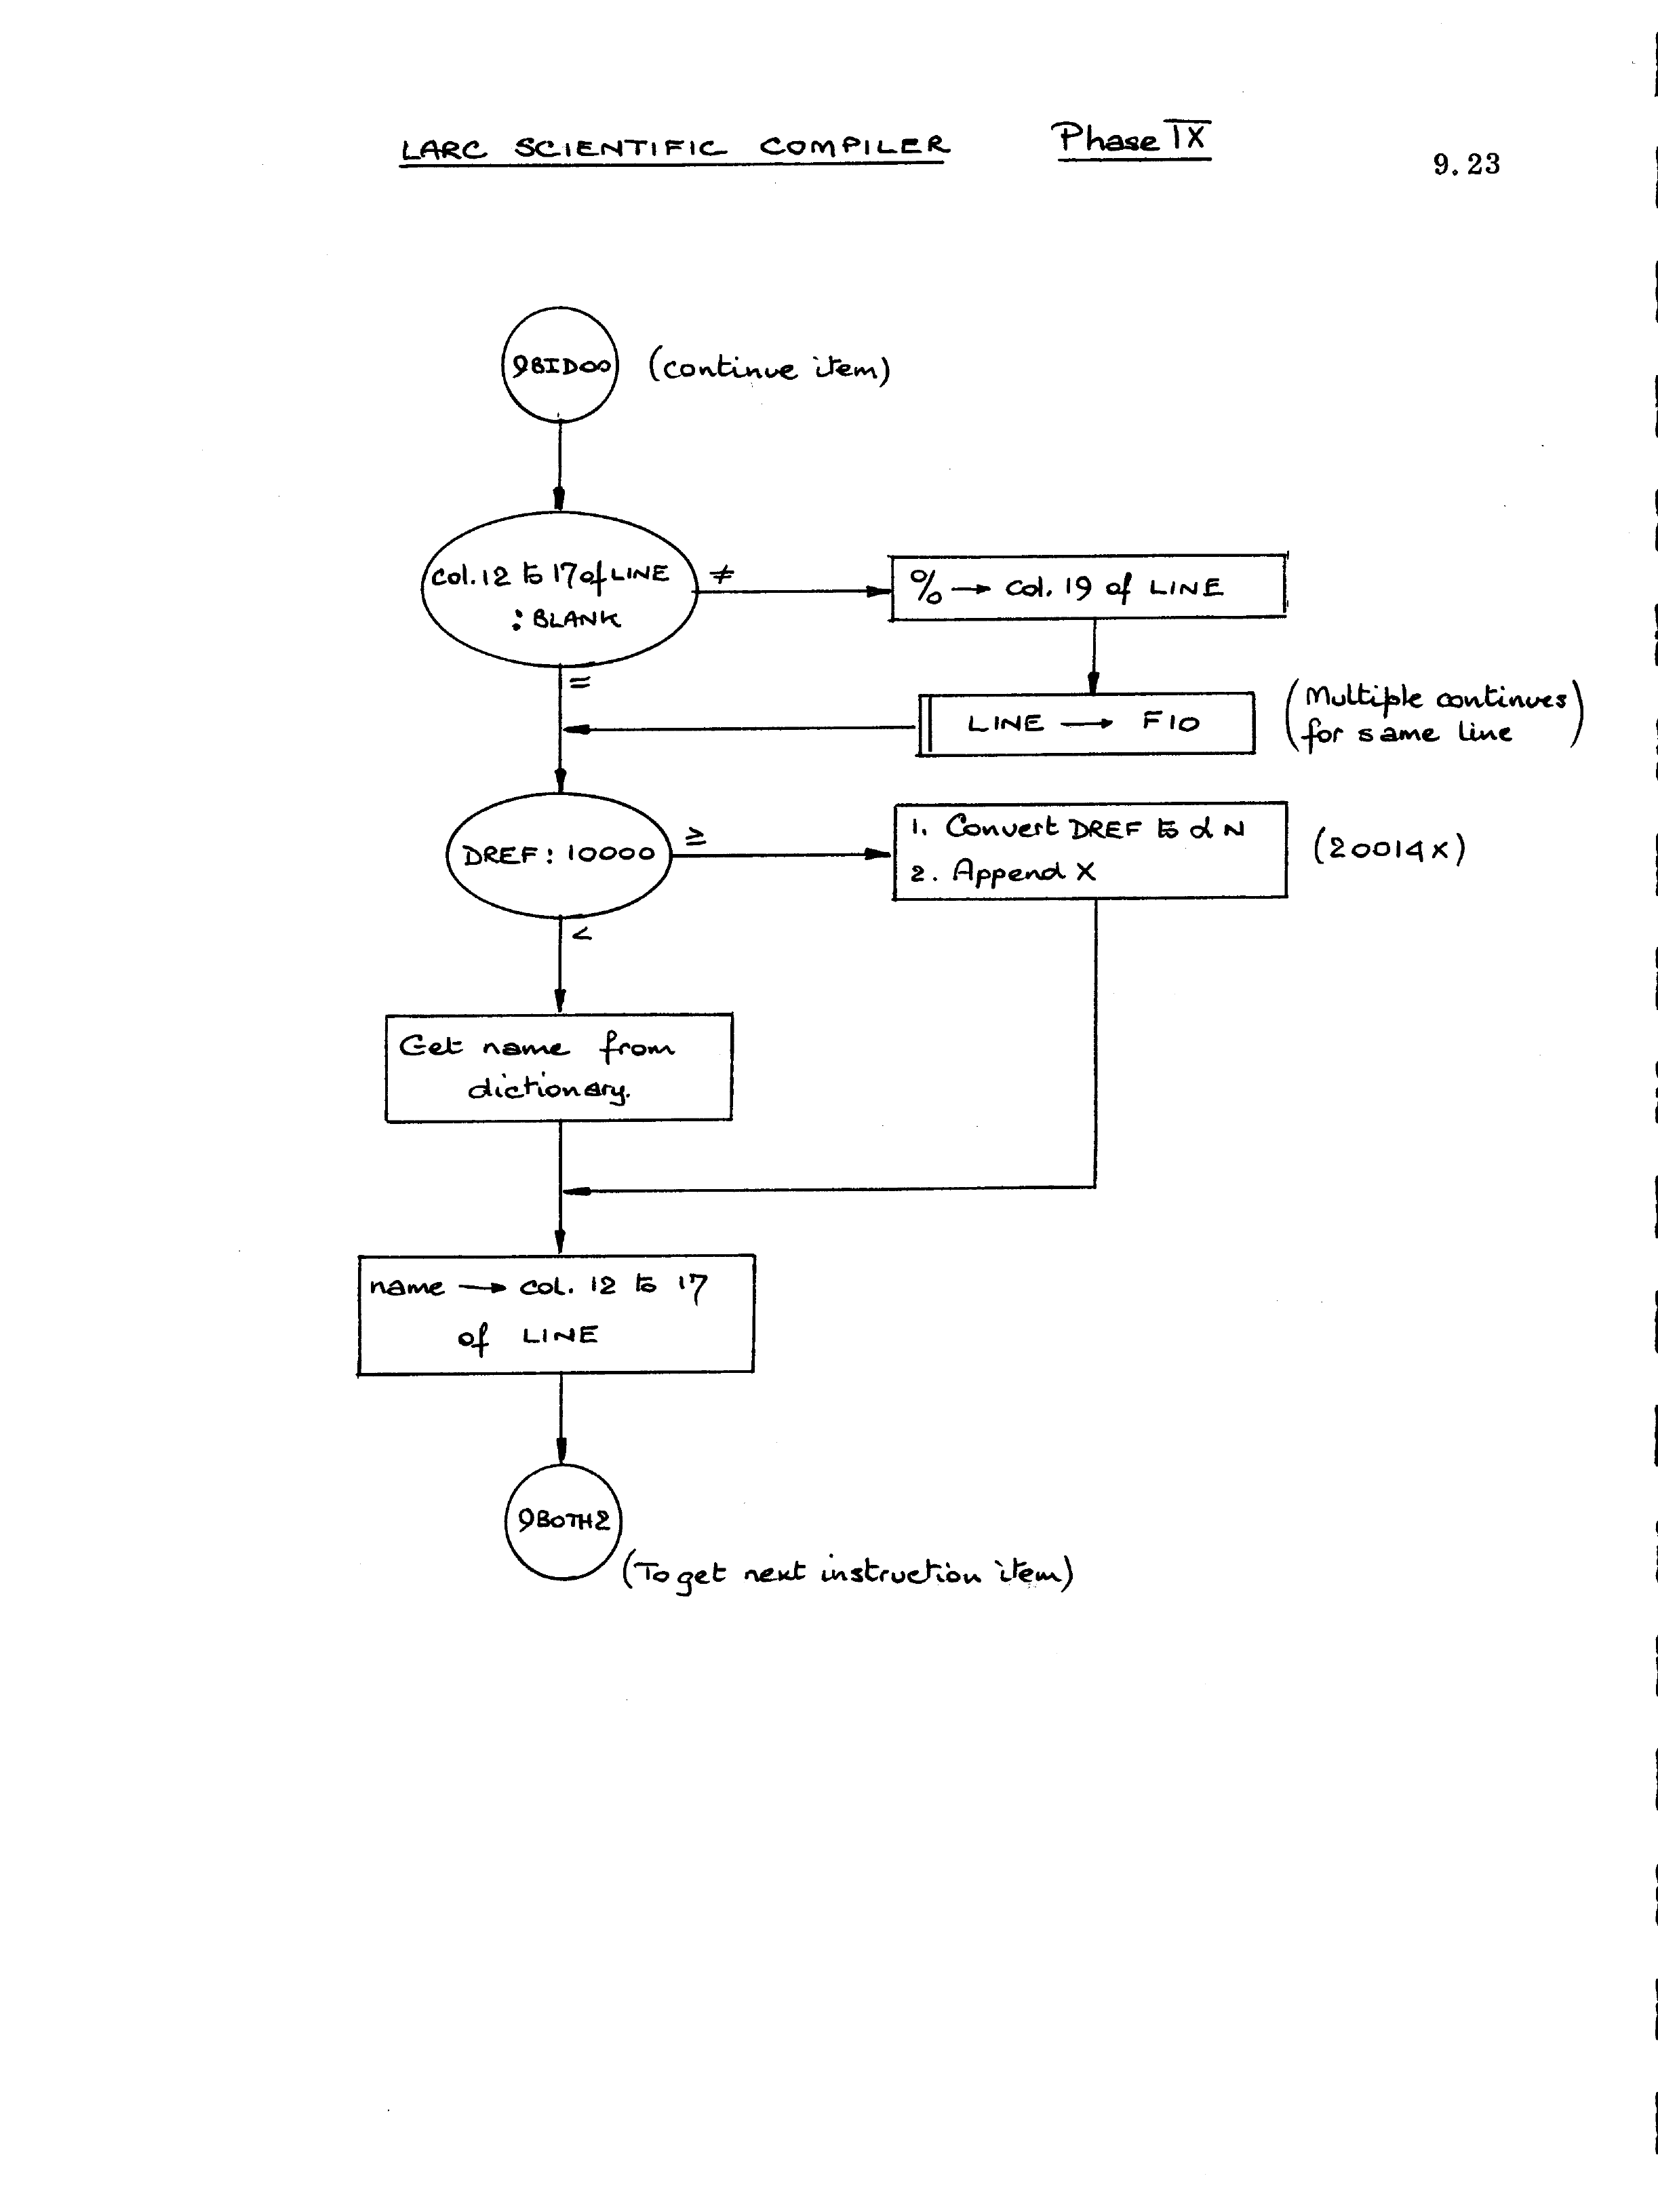 LARC SCIENTIFIC COMPILER Phase IX
9.23
9BID00 (continue item)
Col. 12 to 17 of LINE
: BLANK
≠
% → col. 19 of LINE
=
LINE → F10
(Multiple continues
for same line)
DREF : 10000
≥
1. Convert DREF to α N
2. Append X
(20014X)
<
Get name from
dictionary.
name → col. 12 to 17
of LINE
9BOTH2
(To get next instruction item)